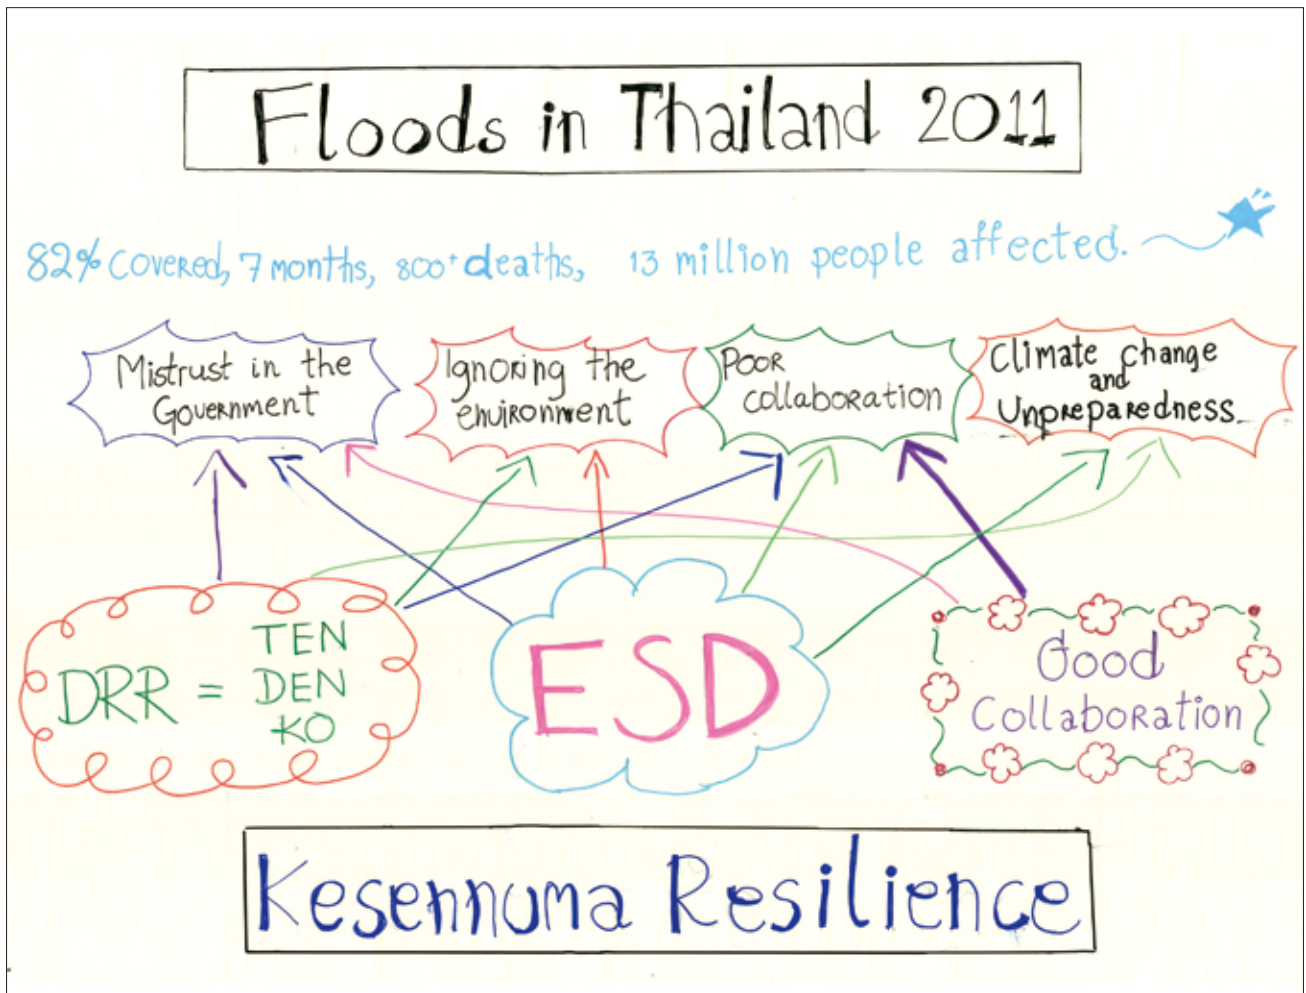 Floods in Thailand 2011
82% covered, 7 months, 800+ deaths, 13 million people affected.
Mistrust in the
Government
Ignoring the
environment
Poor
collaboration
Climate change
and
Unpreparedness
DRR =
TEN
DEN
KO
ESD
Good
Collaboration
Kesennuma Resilience